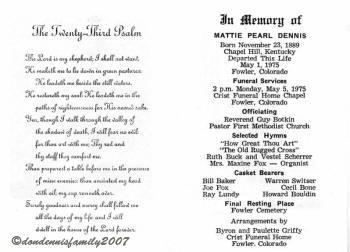 The Twenty-Third Psalm
The Lord is my shepherd; I shall not want.
He maketh me to lie down in green pastures:
He leadeth me beside the still waters.
He restoreth my soul: He leadeth me in the
paths of righteousness for His name's sake.
Yea, though I walk through the valley of
the shadow of death, I will fear no evil:
for thou art with me; Thy rod and
thy staff they comfort me.
Thou preparest a table before me in the presence
of mine enemies: thou anointest my head
with oil; my cup runneth over.
Surely goodness and mercy shall follow me
all the days of my life: and I will
dwell in the house of the Lord forever.
In Memory of
MATTIE PEARL DENNIS
Born November 23, 1889
Chapel Hill, Kentucky
Departed This Life
May 1, 1975
Fowler, Colorado
Funeral Services
2 p.m. Monday, May 5, 1975
Crist Funeral Home Chapel
Fowler, Colorado
Officiating
Reverend Guy Botkin
Pastor First Methodist Church
Selected Hymns
"How Great Thou Art"
"The Old Rugged Cross"
Ruth Buck and Vestel Scherrer
Mrs. Maxine Fox — Organist
Casket Bearers
Bill Baker Warren Switser
Joe Fox Cecil Bone
Ray Lundy Howard Bouldin
Final Resting Place
Fowler Cemetery
Arrangements by
Byron and Paulette Griffy
Crist Funeral Home
Fowler, Colorado
©dondennisfamily2007